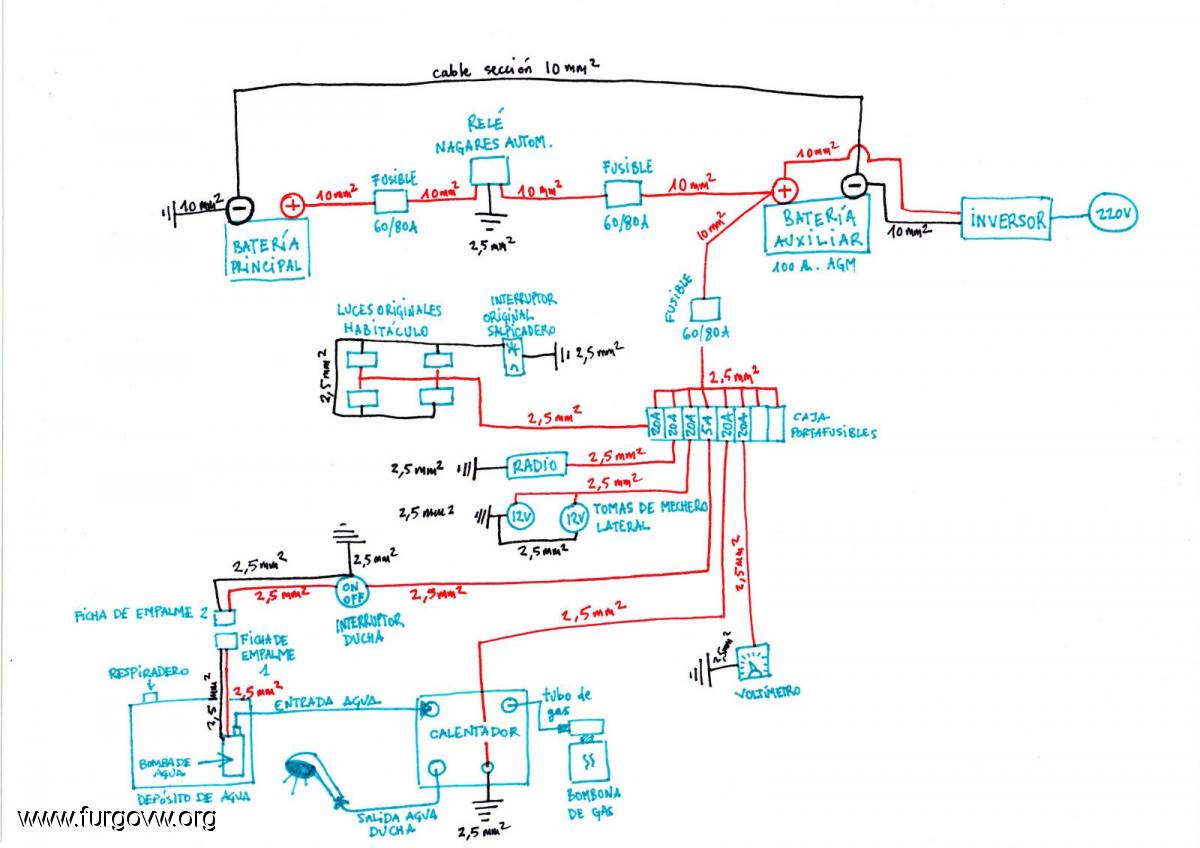 cable sección 10 mm²
RELÉ
NAGARES AUTOM.
FUSIBLE
60/80A
FUSIBLE
60/80A
10 mm²
10 mm²
10 mm²
10 mm²
10 mm²
10 mm²
10 mm²
10 mm²
2,5 mm²
-
+
+
-
BATERÍA
PRINCIPAL
BATERÍA
AUXILIAR
100 Ah. AGM
INVERSOR
220V
FUSIBLE
60/80A
LUCES ORIGINALES
HABITÁCULO
INTERRUPTOR
ORIGINAL
SALPICADERO
2,5 mm²
2,5 mm²
2,5 mm²
2,5 mm²
20A
20A
20A
5A
20A
20A
CAJA
PORTAFUSIBLES
2,5 mm²
RADIO
2,5 mm²
2,5 mm²
2,5 mm²
12V
12V
TOMAS DE MECHERO
LATERAL
2,5 mm²
2,5 mm²
2,5 mm²
2,5 mm²
ON
OFF
2,5 mm²
INTERRUPTOR
DUCHA
FICHA DE EMPALME 2
FICHA DE
EMPALME
1
2,5 mm²
2,5 mm²
2,5 mm²
2,5 mm²
VOLTÍMETRO
RESPIRADERO
2,5 mm²
2,5 mm²
ENTRADA AGUA
BOMBA DE
AGUA
DEPÓSITO DE AGUA
CALENTADOR
tubo de
gas
BOMBONA
DE GAS
SALIDA AGUA
DUCHA
2,5 mm²
www.furgovw.org